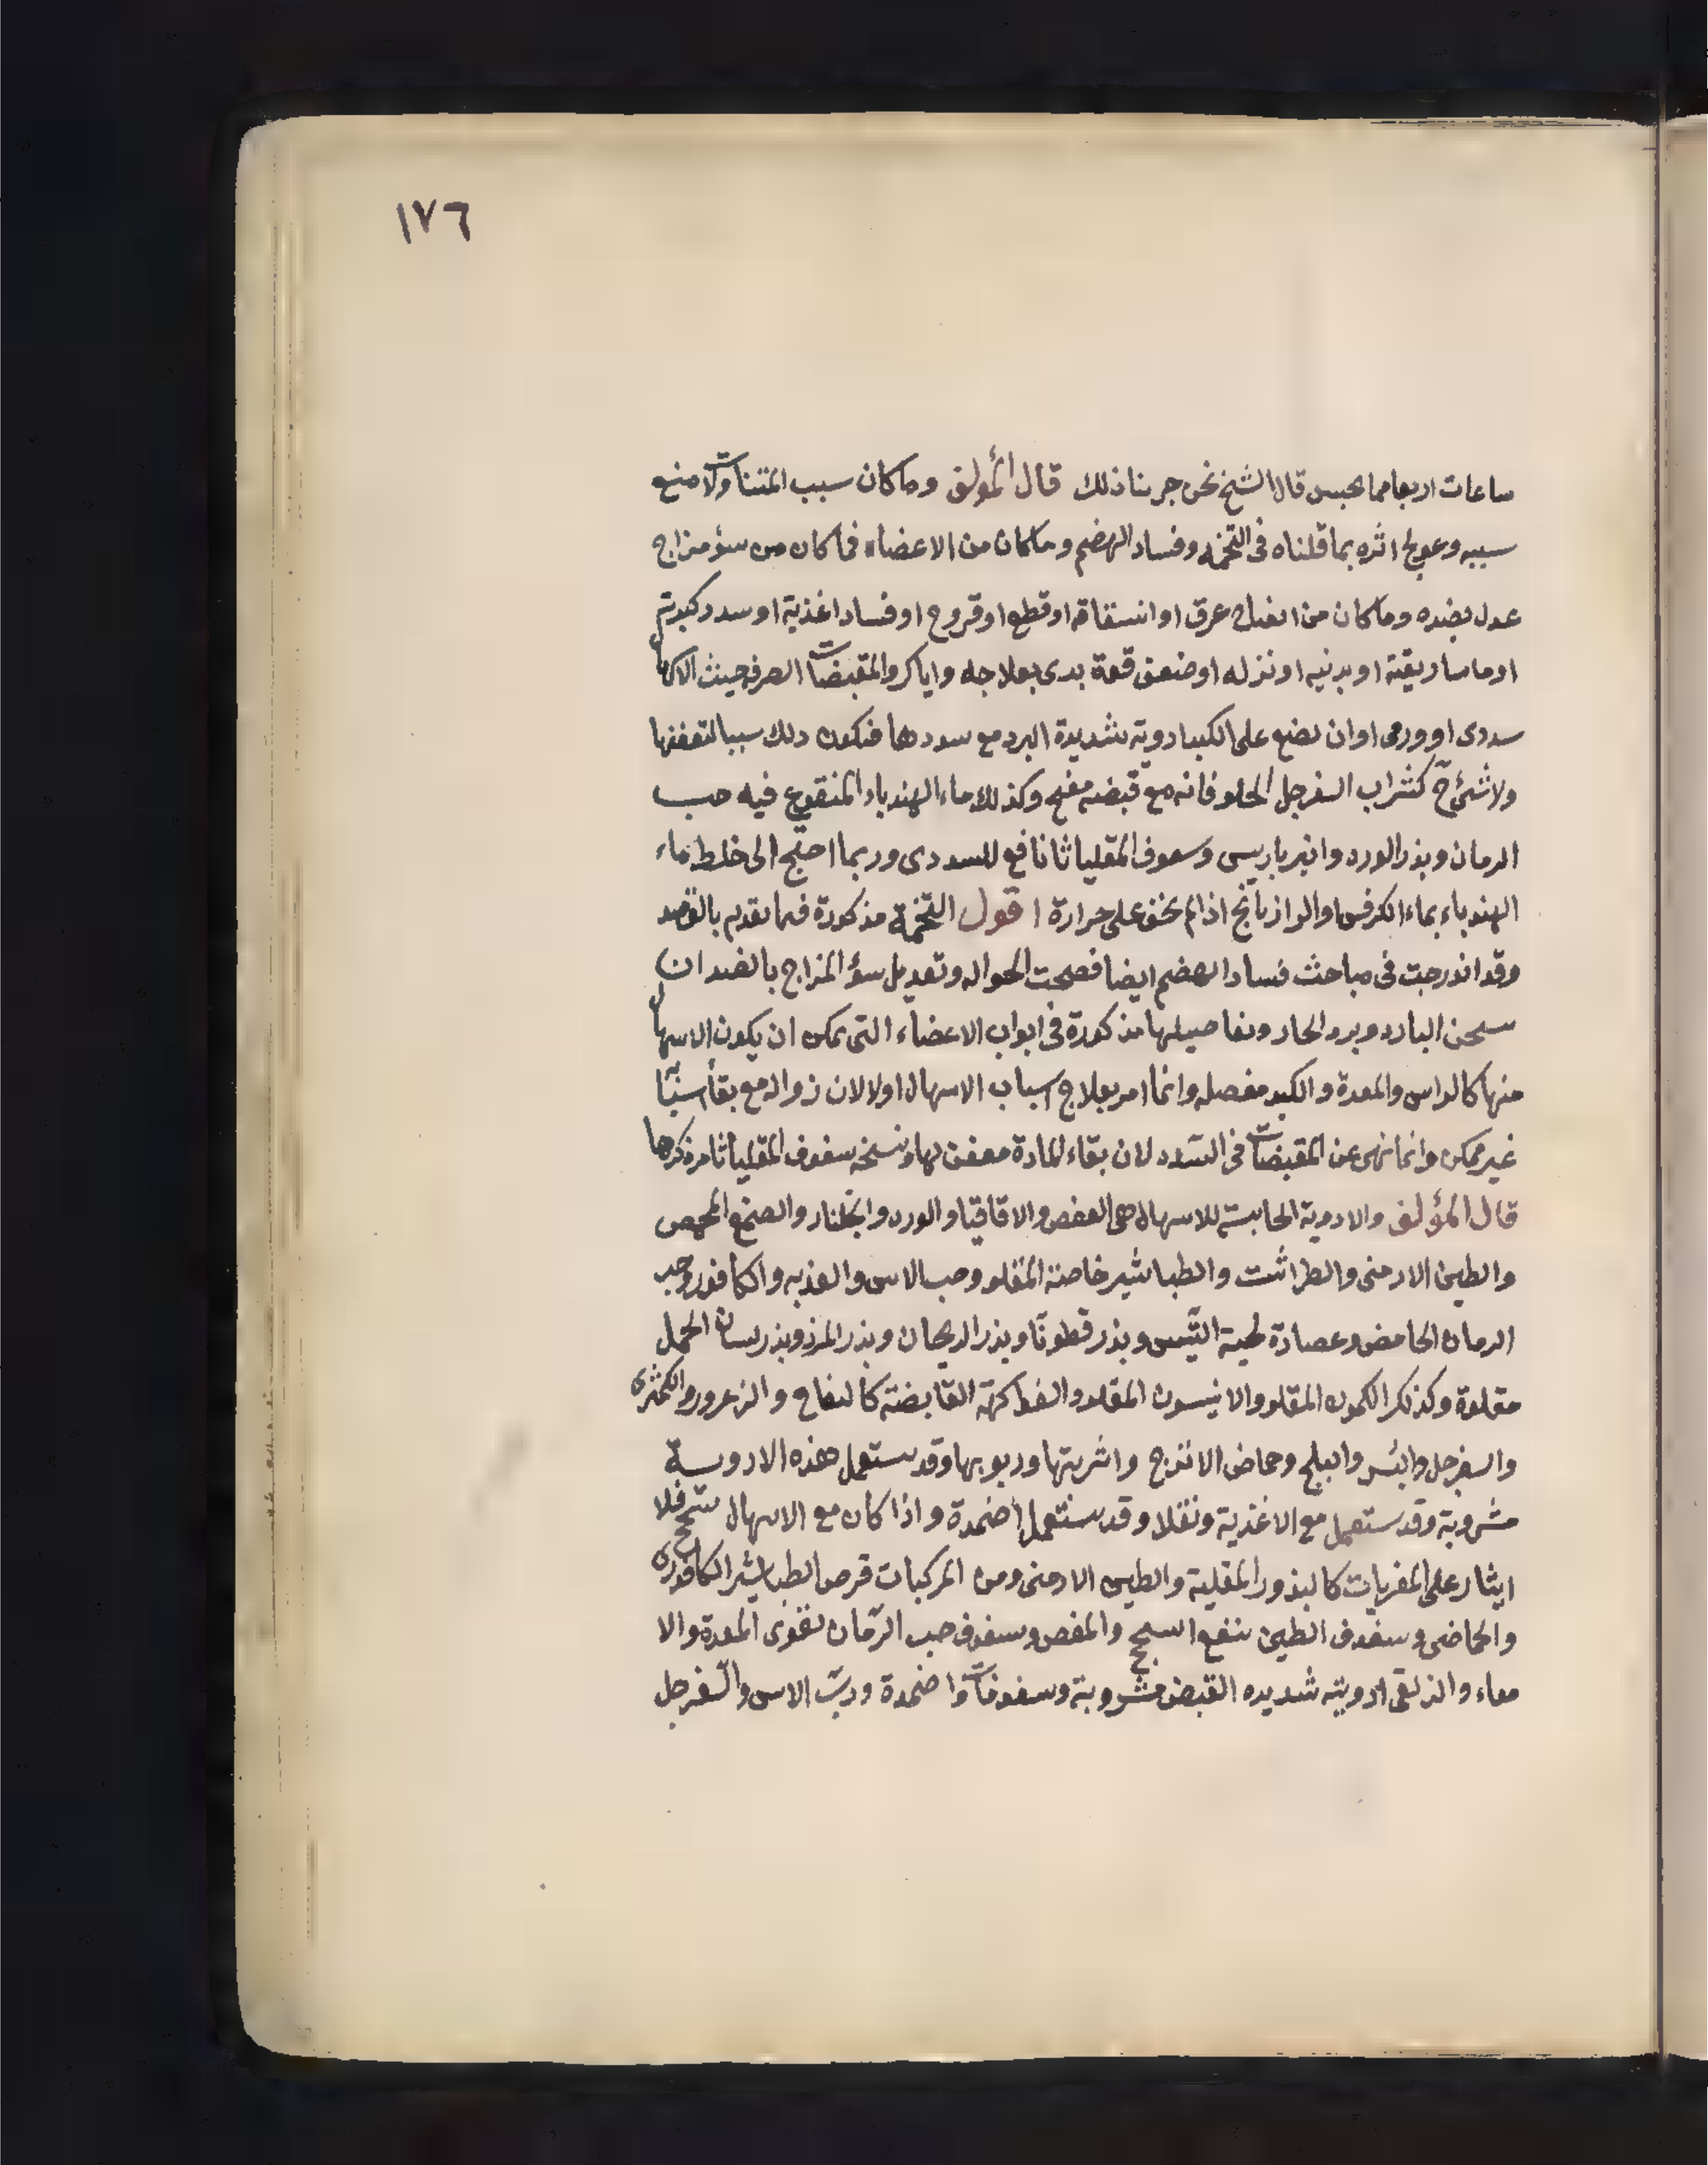 ١٧٦
ساعات اربعا مما يحبس قال الشيخ نحن جربنا ذلك قال المؤلف وما كان سبب المتناولات منع
سببه وعولج اثره بما قلناه فى التخمه وفساد الهضم وما كان من الاعضاء فما كان من سؤ مزاج
عدل بضده وما كان من انفتاح عرق او انشقاقه او قطع او قروح او فساد اغذية او سدد كبدية
او ماساريقية او بدنيه او نزله او ضعف قوة بدى بعلاجه واياك والمقبضات الصرفه حيث الاسهال
سددى او ورمى او ان تضع على الكبد ادوية شديدة البرد مع سددها فتكون ذلك سببا لتعفنها
ولا شئ ح كشراب السفرجل الحلو فانه مع قبضه مفتح وكذلك ماء الهندباء المنقوع فيه حب
الرمان وبذر الورد وانبرباريس وسفوف المقلياثا نافع للسددى وربما احتيج الى خلط ماء
الهندباء بماء الكرفس او الرازيانج اذا لم يخف على حرارة اقول التخمة مذكورة فيما تقدم بالقصد
وقد اندرجت فى مباحث فساد الهضم ايضا فصحت الحواله وتعديل سؤ المزاج بالضد ان
يسخن البارد ويبرد الحار وتفاصيلها مذكورة فى ابواب الاعضاء التى يمكن ان يكون الاسهال
منها كالراس والمعدة والكبد مفصله وانما امر بعلاج اسباب الاسهال اولا لان زواله مع بقأ اسبابه
غير ممكن وانما نهى عن المقبضات فى السدد لان بقاء المادة معفن لها ونسخه سفوف المقلياثا مر ذكرها
قال المؤلف والادوية الحابسة للاسهال هى العفص والاقاقيا والورد والجلنار والصمغ المحمص
والطين الارمنى والطراثيث والطباشير خاصة المقلو وحب الاس والعذبه والكافور وحب
الرمان الحامض وعصارة لحية التيس وبذر قطونا وبذر الريحان وبذر المرو وبذر لسان الحمل
مقلوة وكذلك الكمون المقلو والانيسون المقلو والفواكهة القابضة كالتفاح والزعرور والكمثرى
والسفرجل والبسر والبلح وحماض الاترج واشربتها وربوبها وقد يستعمل هذه الادوية
مشروبة وقد يستعمل مع الاغذية ونقلا وقد يستعمل اضمدة واذا كان مع الاسهال سحج فلا
ايثار على المغريات كالبذور المقلية والطين الارمنى ومن المركبات قرص الطباشير الكافورى
والحماضى وسفوف الطين ينفع السحج والمغص وسفوف حب الرمان تقوى المعدة والا
معاء والزلقى ادويته شديده القبض مشروبة وسفوفات واضمدة ورب الاس والسفرجل